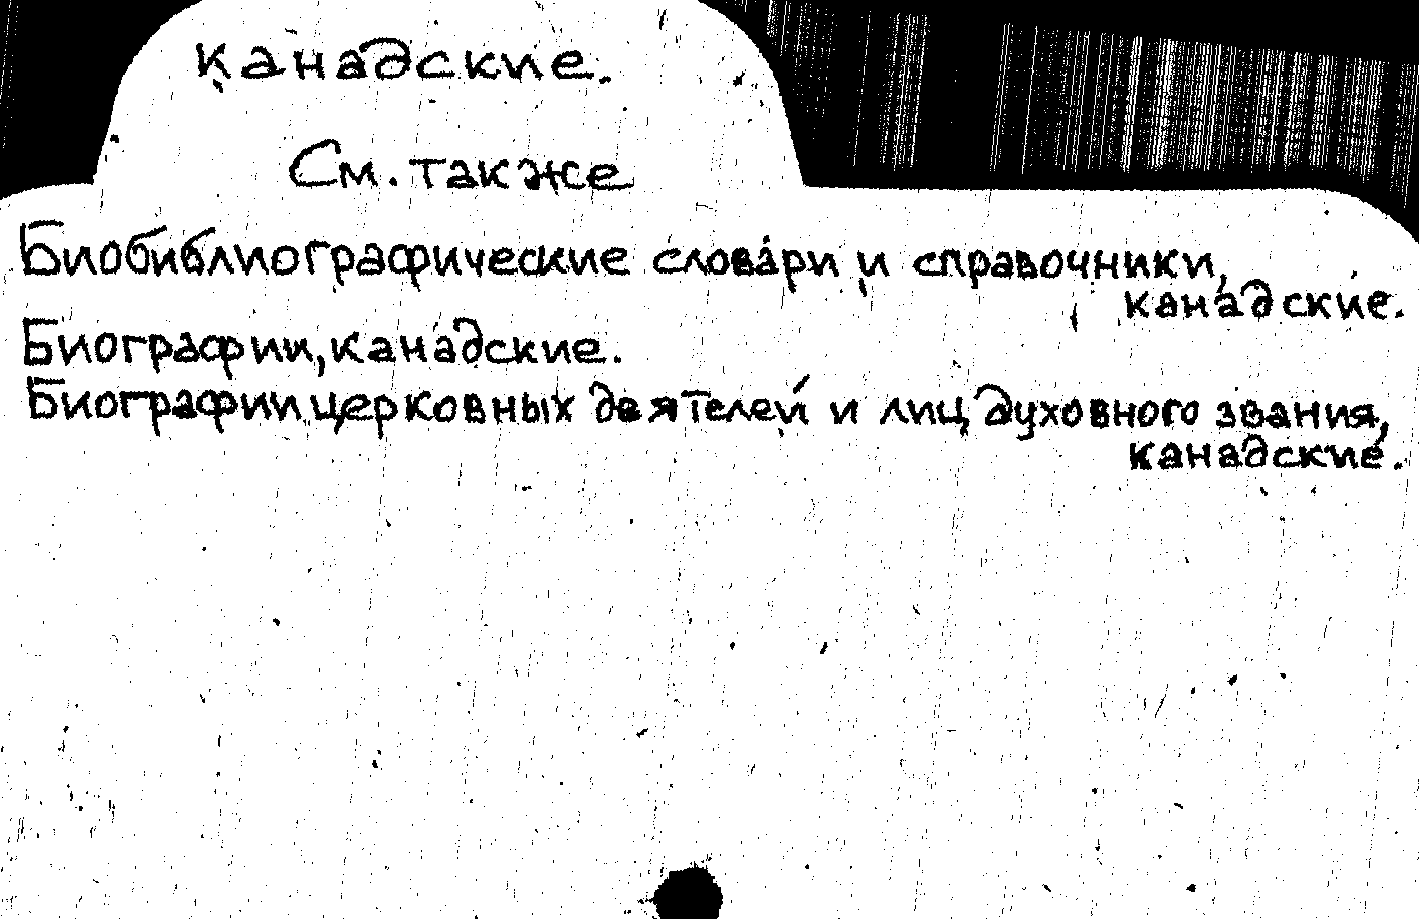 канадские.
См. также
Биобиблиографические словари и справочники,
канадские.
Биографии, канадские.
Биографии церковных деятелей и лиц духовного звания,
канадские.